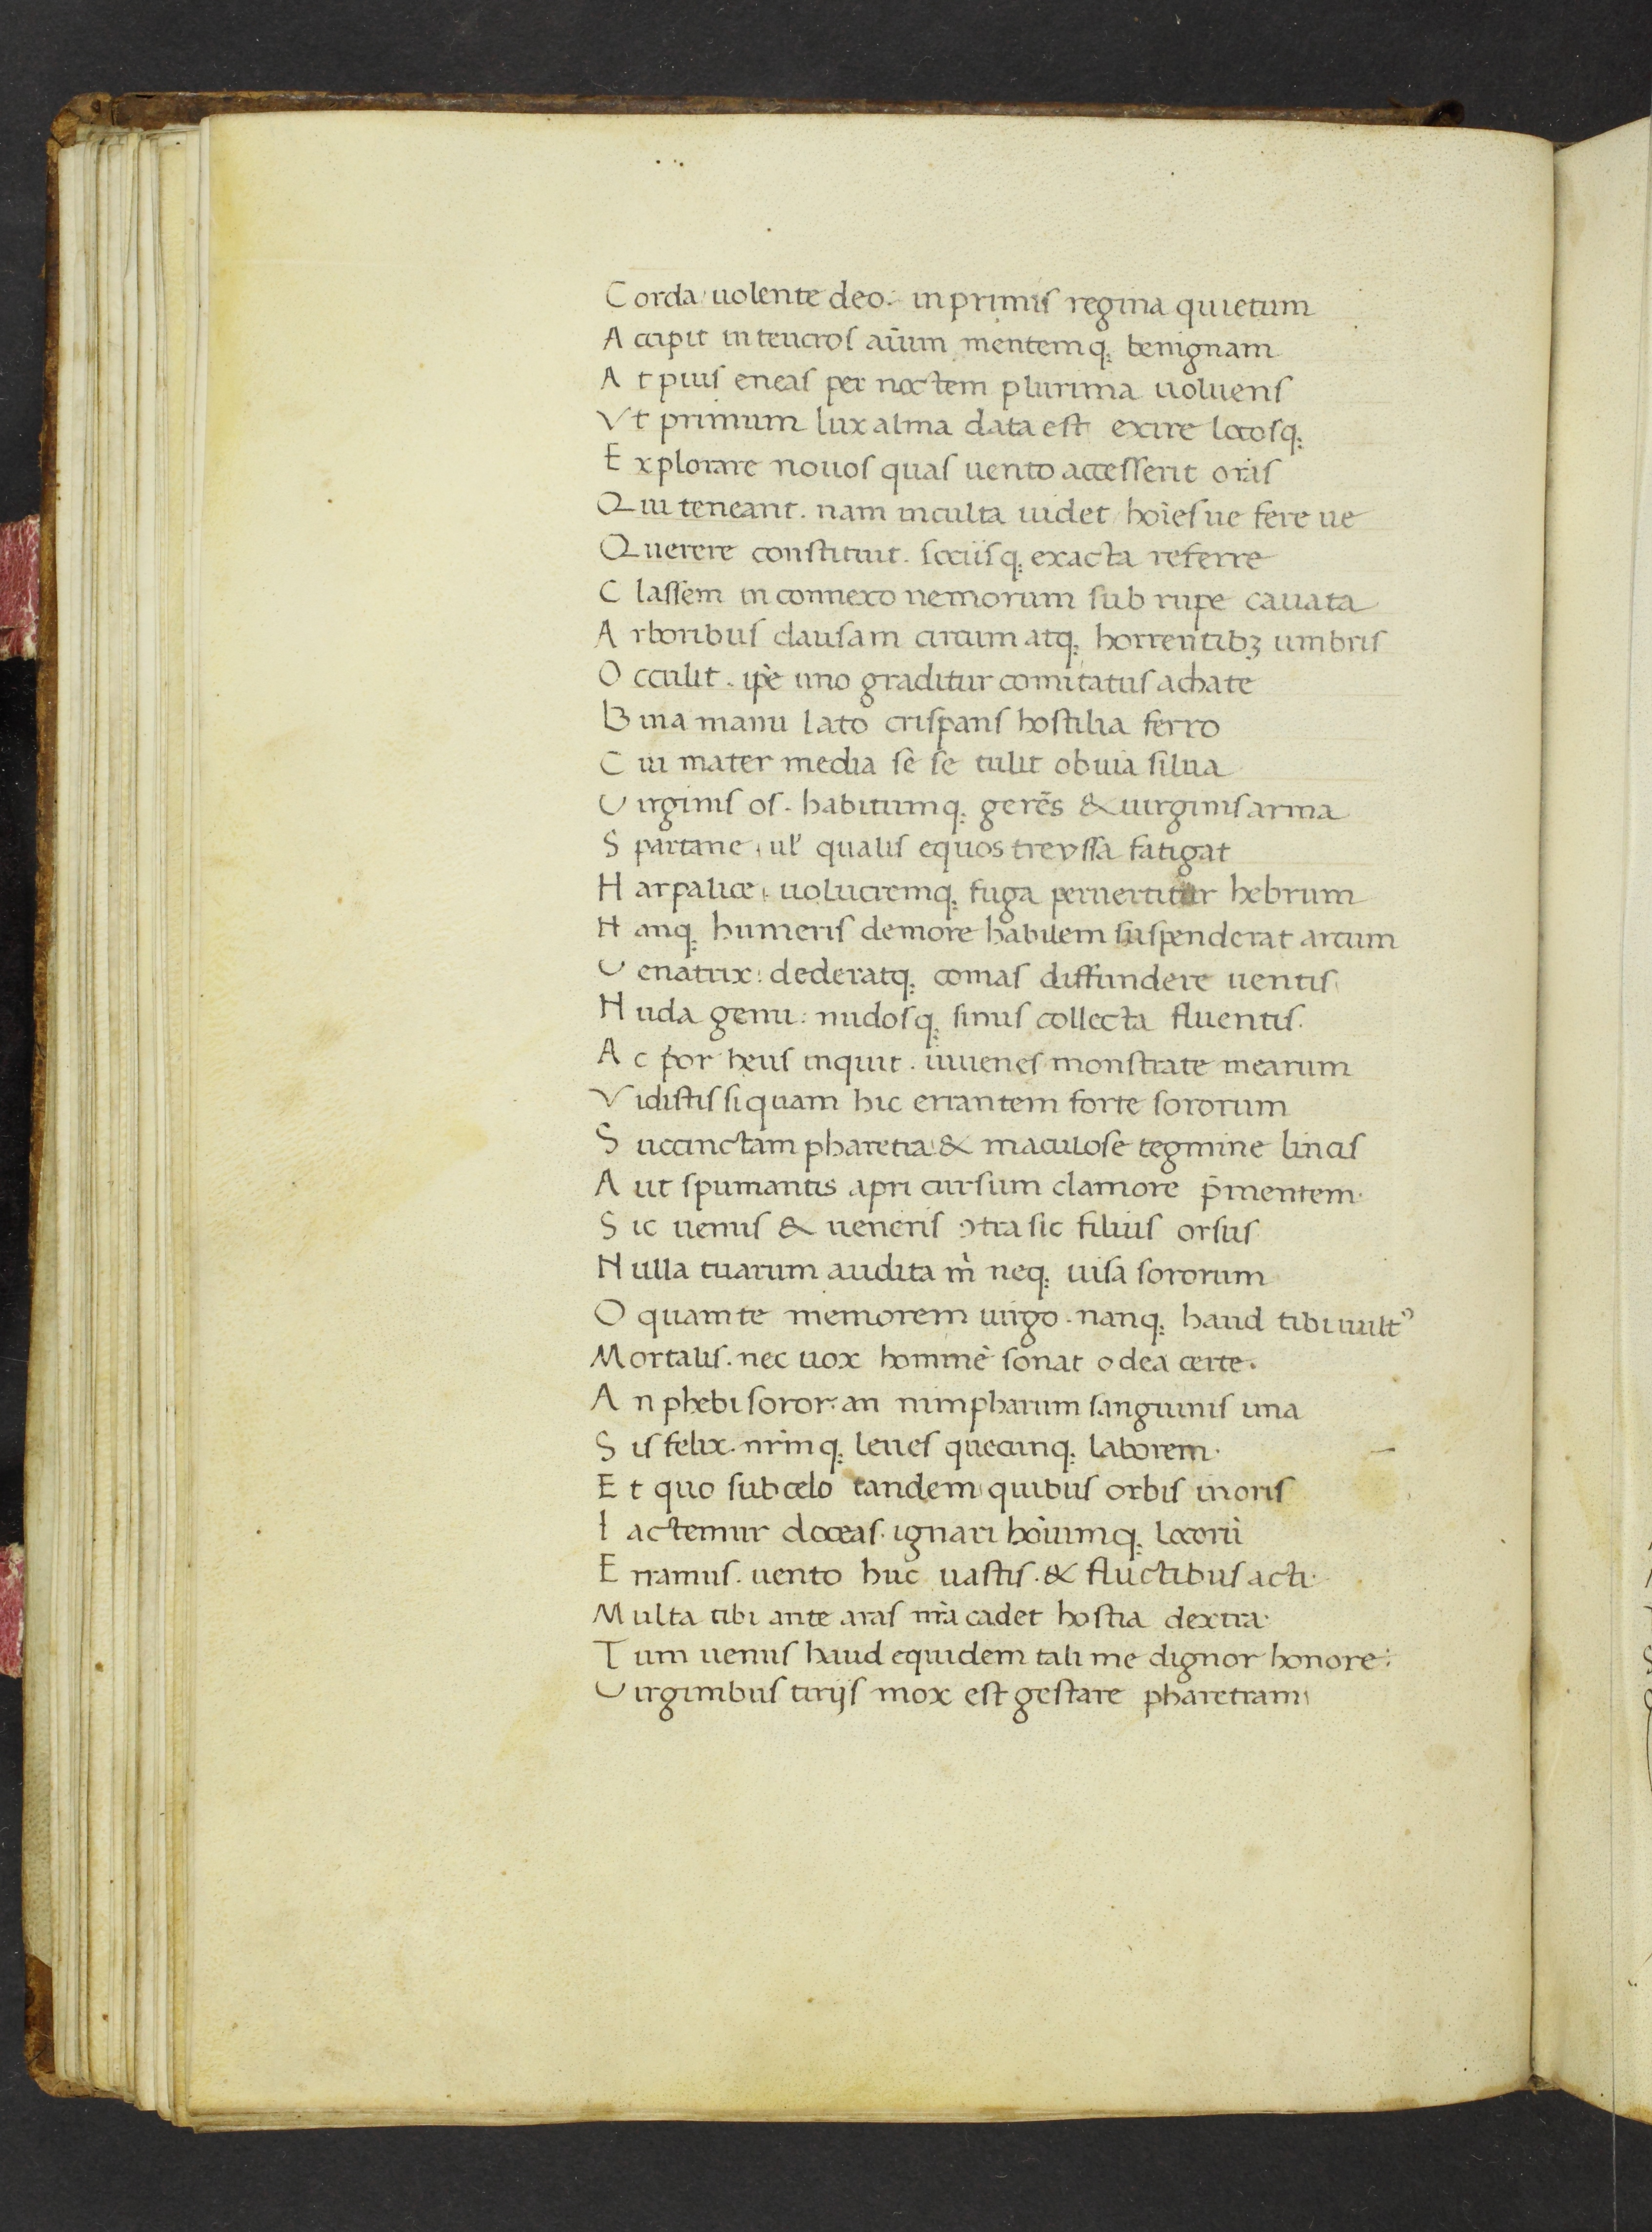 Corda uolente deo. in primis regina quietum
Accipit in teucros aīum mentemq; benignam
At pius eneas per noctem plurima uoluens
Vt primum lux alma data est exire locosq;
Explorare nouos quas uento accesserit oras
Qui teneant. nam inculta uidet hoīesue fere ue
Querere constituit. sociisq; exacta referre
Classem in connexo nemorum sub rupe cauata
Arboribus clausam circum atq; horrentibꝫ umbris
Occulit. ip̄e uno graditur comitatus achate
Bina manu lato crispans hostilia ferro
Cui mater media se se tulit obuia silua
Virginis os. habitumq; gerēs & uirginis arma
Spartane, ul' qualis equos treyssa fatigat
Harpalice, uolucremq; fuga peruertitur hebrum
Hanq; humeris demore habilem suspenderat arcum
Venatrix: dederatq; comas diffundere uentis
Nuda genu: nudosq; sinus collecta fluentis.
Ac p̄or heus inquit. iuuenes monstrate mearum
Vidistis si quam hic errantem forte sororum
Succinctam pharetra & maculose tegmine lincis
Aut spumantis apri cursum clamore p̄mentem.
Sic uenus & ueneris ↄtra sic filius orsus
Nulla tuarum audita m̄ neq; uisa sororum
O quam te memorem uirgo. nanq; haud tibi uultꝰ
Mortalis. nec uox hominē sonat o dea certe.
An phebi soror: an nimpharum sanguinis una
Sis felix. nr̄mq; leues quecunq; laborem.
Et quo sub celo tandem quibus orbis in oris
Iactemur doceas. ignari hoīumq; locorū
Erramus. uento huc uastis. & fluctibus acti.
Multa tibi ante aras nr̄a cadet hostia dextra.
Tum uenus haud equidem tali me dignor honore:
Virginibus tirijs mox est gestare pharetram